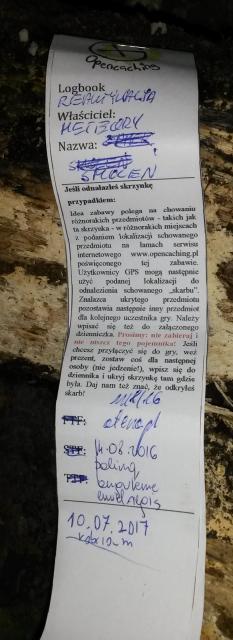 Opencaching
Logbook
REAKTYWACJA
Właściciel:
METEORY
Nazwa:
SMOLEŃ
Jeśli odnalazłeś skrzynkę
przypadkiem:
Idea zabawy polega na chowaniu
różnorakich przedmiotów - takich jak
ta skrzynka - w różnorakich miejscach
z podaniem lokalizacji schowanego
przedmiotu na łamach serwisu
internetowego www.opencaching.pl
poświęconego tej zabawie.
Użytkownicy GPS mogą następnie
użyć podanej lokalizacji do
odnalezienia schowanego „skarbu".
Znalazca ukrytego przedmiotu
pozostawia następnie inny przedmiot
dla kolejnego uczestnika gry. Należy
wpisać się też do załączonego
dzienniczka. Prosimy: nie zabieraj i
nie niszcz tego pojemnika! Jeśli
chcesz przyłączyć się do gry, weź
prezent, zostaw coś dla następnej
osoby (nie jedzenie!), wpisz się do
dziennika i ukryj skrzynkę tam gdzie
była. Daj nam też znać, że odkryłeś
skarb!
FTF:
STF: 14-08-2016
TTF:
10.07.2017